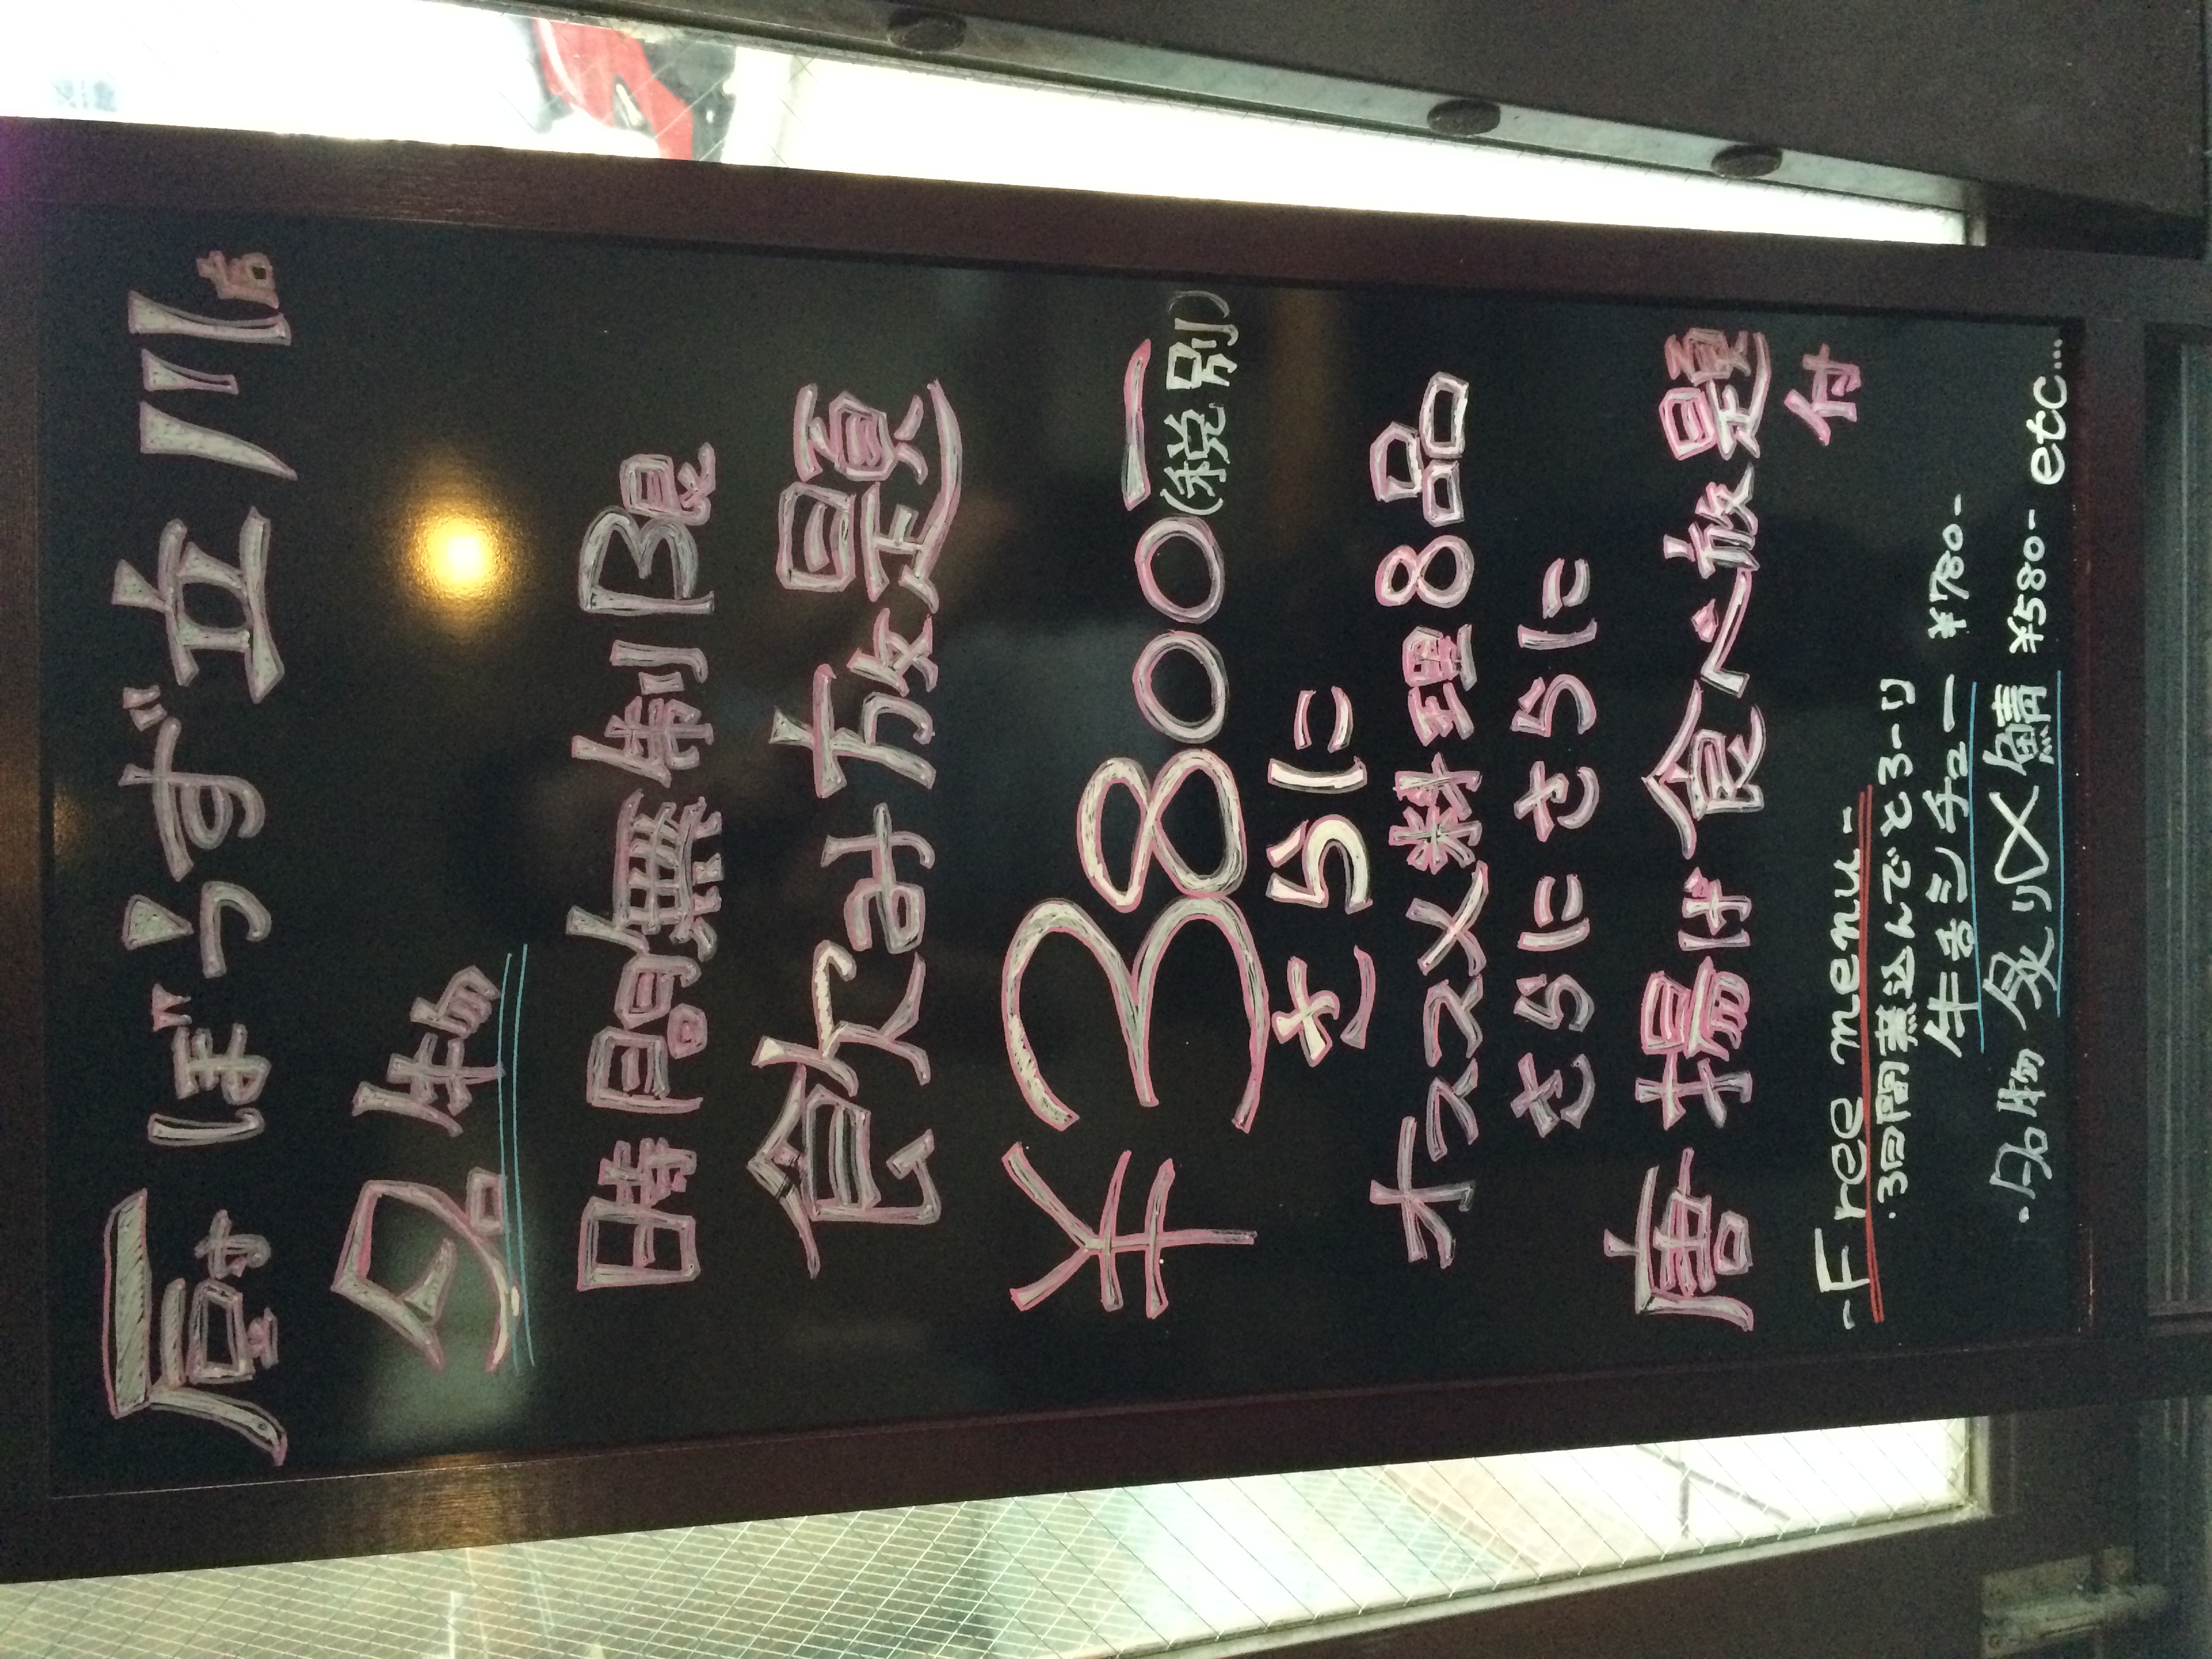 厨ぼうず立川店
名物
時間無制限
飲み放題
¥3800ー
(税別)
さらに
オススメ料理8品
さらにさらにさらに
唐揚げ食べ放題
付
-Free menu-
・3日間煮込んでとろーり
牛舌シチュー ¥780-
-名物 炙り〆鯖 ¥580- etc...